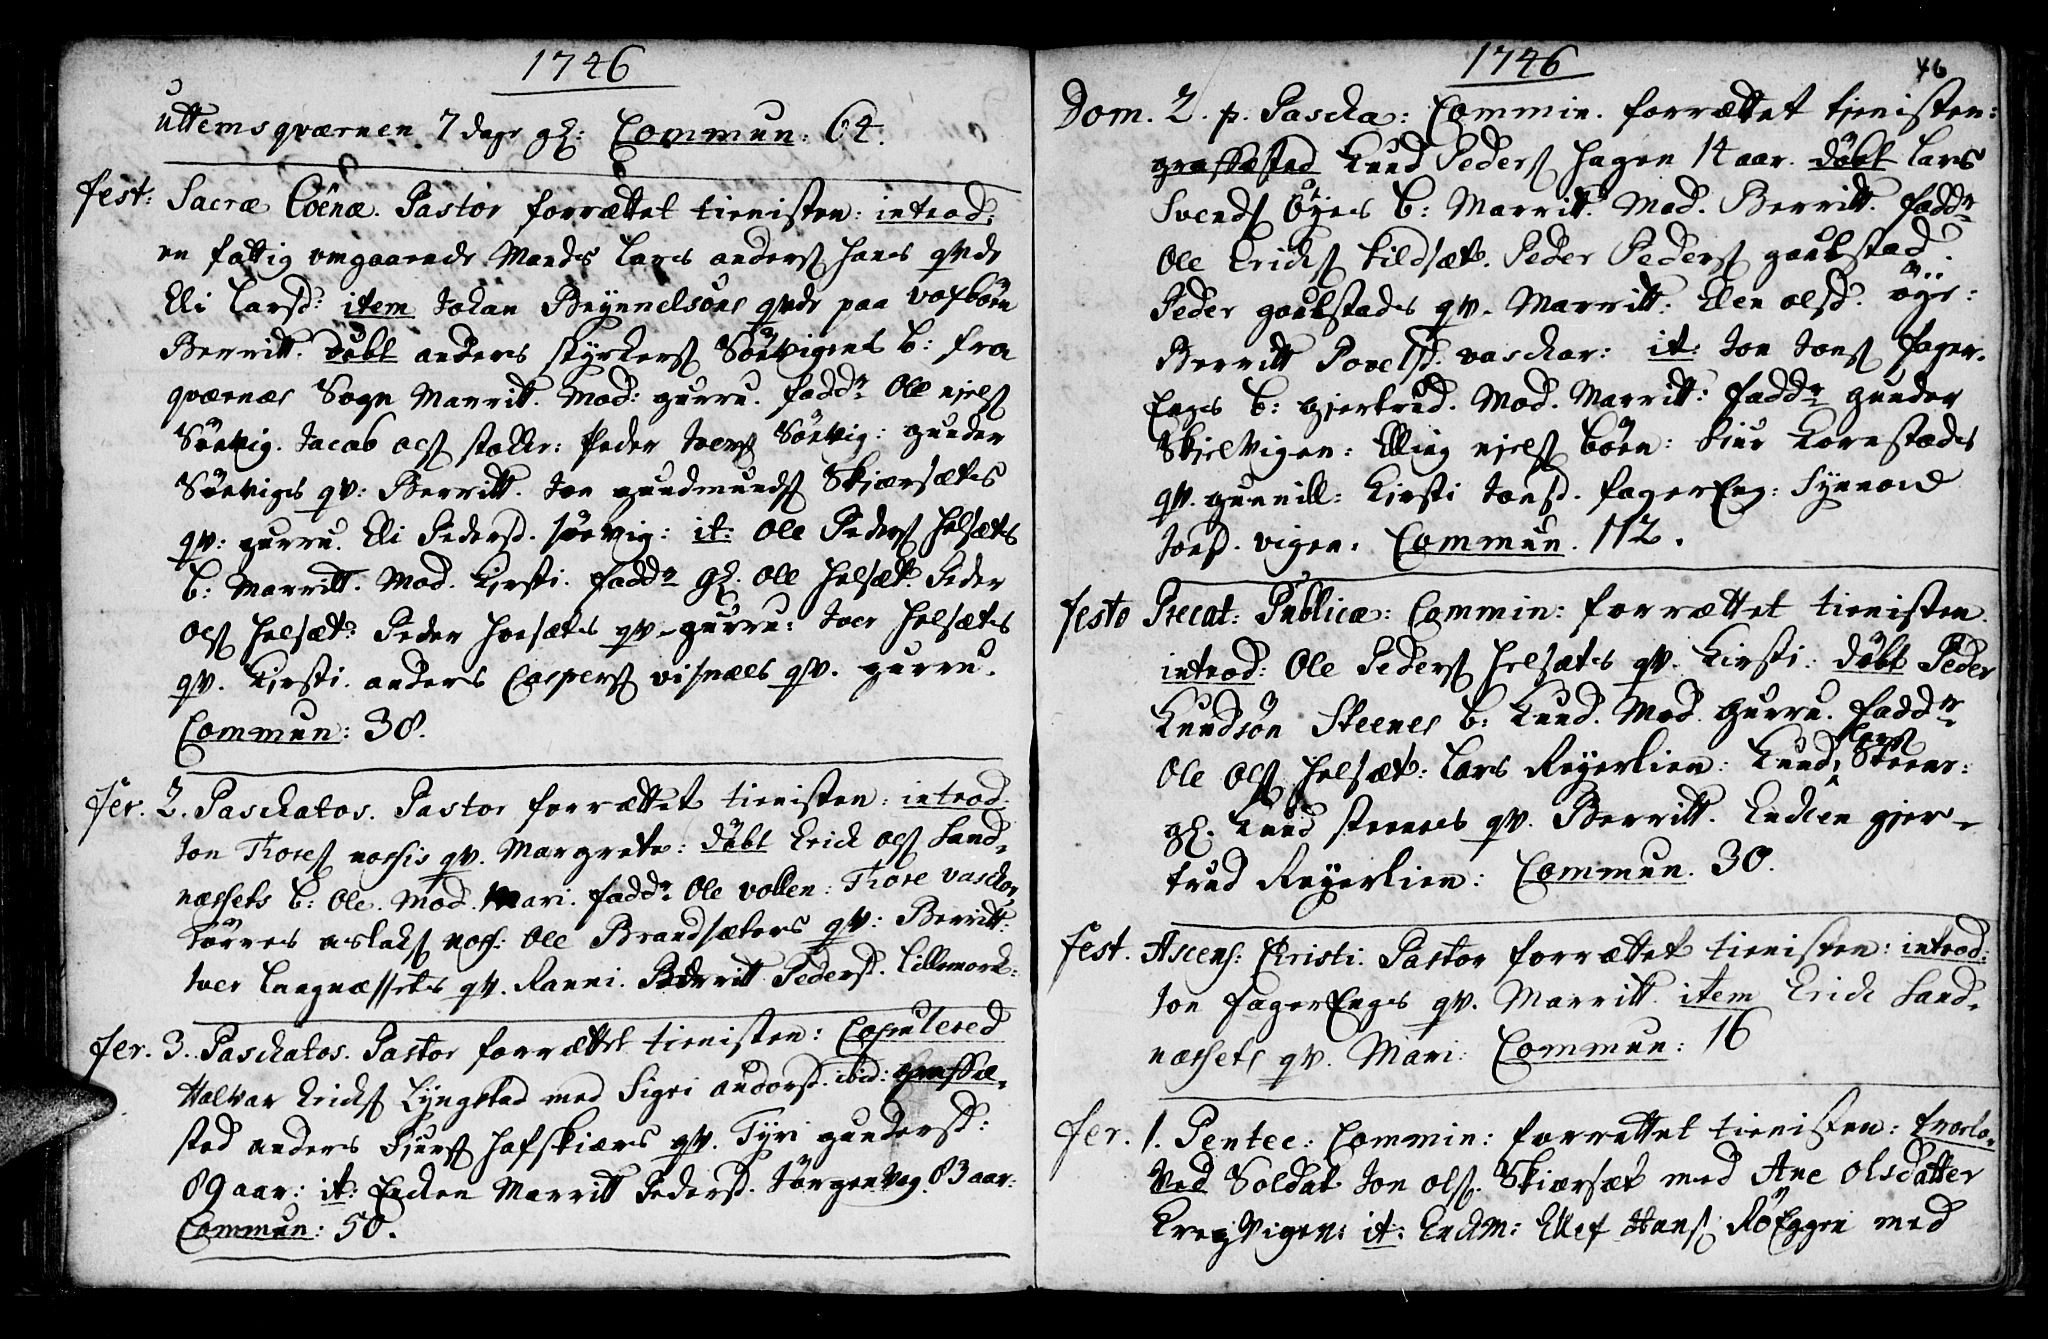 1746
uttemsqværnen 7 dage gl: Commun: 64.
fest: Sacræ Cöenæ. Pastor forrættet tienisten: introd:
en fattig omgaaende Mands Lars anders hans qvde
Eli Larsd: item Johan Brynnelsöns qvde paa
Berritt. döbt anders styrkers Söevigens b: fra
qværnæs Sogn Marritt. Mod: gurru. fadd:r Ole njels
Söevig. Jacob ols stolle: Peder Joers Söevig: gunder
Söeviges qv: Berritt. Jon gundmunds Skjærsætes
qv: gurru. Eli Pedersd. söevig: it: Ole Peders helsætes
b: Marritt. Mod. Kirsti. fadd:r gl. Ole helsæt Peder
ols helsæt: Peder hoesætes qv. gurru: Joer helsætes
qv. Kirsti. anders Caspers visnæs qv. gurru.
Commun: 30.
fer. 2. Paschatos. Pastor forrættet tienisten: introd:
Jon Thores nossis qv. Margrete: döbt Erich ols Sand-
næssets b: Ole. Mod. Mari. fadd:r Ole vollen: Thore
Törres aslaks noss: Ole Brandsæters qv: Berritt:
Iver Langnæssets qv. Ranni. Berritt Pedersd. Lillemork:
fer. 3. Paschatos. Pastor forrættet tienisten: Copulered
Halvar Erichs Lyngstad med Sigri andersd. ibid: græsfæ-
sted anders Siurs hafskiærs qv. Tyri gundersd:
89 aar: it: Enchen Marritt Pedersd. Jörgenvog. 83 aar:
Commun: 50.
1746
46
Dom. 2. p. Pascha: Commin. forrættet tienisten:
græsfæsted Knud Peders hagen 14 aar. döbt Lars
Svends öyes b: Marritt. Mod. Berritt. fadd:r
Ole Erichs kildsæt. Peder Peders goulstad.
Peder goulstades qv. Marritt: Elen olsd. öye:
Berritt Povelsd. vaschar: it: Jon Jons fager-
Enges b: gjertrud. Mod. Marritt: fadd:r gunder
Skjelvigen: Elling njels böen: Siur Kornstads
qv. gunnill: Kirsti Jonsd. fagerEng: Synnove
Jonsd. vigen. Commun. 112.
festo Precat: Publicæ: Commin: forrættet tienisten.
introd: Ole Peders helsætes qv. Kirsti: döbt Peder
Knudsön Steenes b: Knud. Mod. Gurru. fadd:r
Ole Ols helsæt: Lars Røyerlien: Knud Lars Steene:
gl. Knud steenes qv. Berritt. Enchen gjer-
trud Røyerlien: Commun. 30.
fest. Ascens: Christi. Pastor forrættet tienisten: introd:
Jon fagerEnges qv. Marritt. item Erich Sand-
næssets qv. Mari: Commun: 16
fer. 1. Pentec: Commin: forrættet tienisten: trolo-
ved Soldat Jon ols. Skiærsæt med Ane Olsdatter
Kregvigen: it: Enchm: Ellef Hans Röeggen med